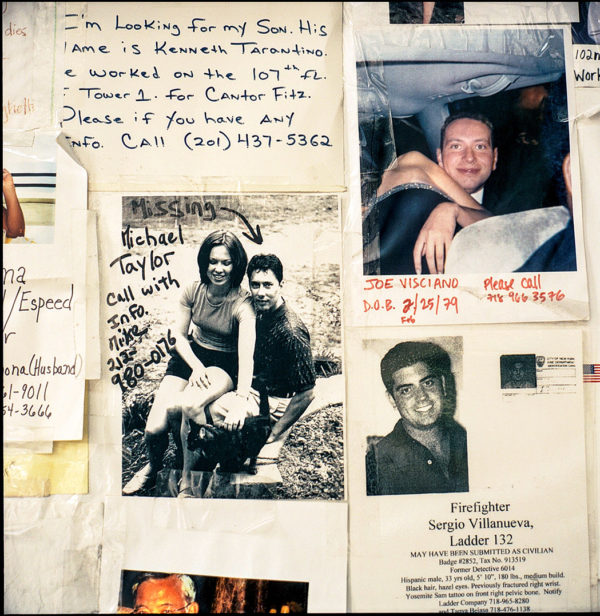 I'm Looking for my Son. His
Name is Kenneth Tarantino.
e worked on the 107th fl.
Tower 1. for Cantor Fitz.
Please if you have any
Info. Call (201) 437-5362
Missing
Michael
Taylor
Call with
Info.
Mike
980-0176
JOE VISCIANO
D.O.B. 2/25/79
Feb
Please call
718 966 3576
102n
Work
dies
na
/Espeed
r
ona (Husband)
61-9011
54-3666
CITY OF NEW YORK
Firefighter
Sergio Villanueva,
Ladder 132
MAY HAVE BEEN SUBMITTED AS CIVILIAN
Badge #2852, Tax No. 913519
Former Detective 6014
Hispanic male, 33 yrs old, 5' 10", 180 lbs., medium build.
Black hair, hazel eyes. Previously fractured right wrist.
Yosemite Sam tattoo on front right pelvic bone. Notify
Ladder Company 718-965-8280
and Tanya Bejasa 718-476-1138